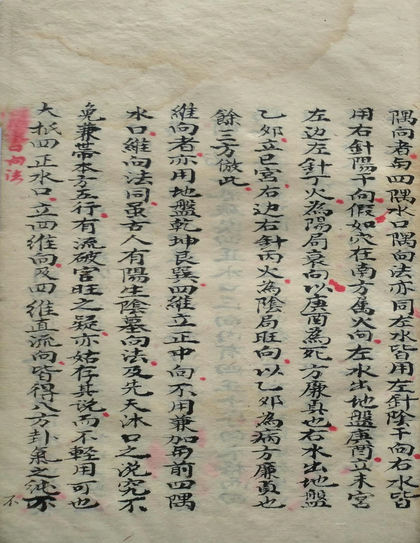 隅向者与四隅水口隅向法亦同左水皆用左針陰干向右水皆
用右針陽干向假如穴在南方属火向左水出地盤庚酉立未宮
左边左針丁火為陽局衰向以庚酉為死方廉貞也右水出地盤
乙夘立巳宮右边右針丙火為陰局旺向以乙夘為病方廉貞也
餘三方倣此
維向者亦用地盤乾坤艮巽四維立正中向不用兼加与前四隅
水口維向法同虽古人有陽生陰墓向法及先天沐口之说究不
免兼帶本方五行有流破官旺之疑亦姑存其说而不輕用可也
大抵四正水口立西維向及四維直流向皆得八方卦氣之純不
不